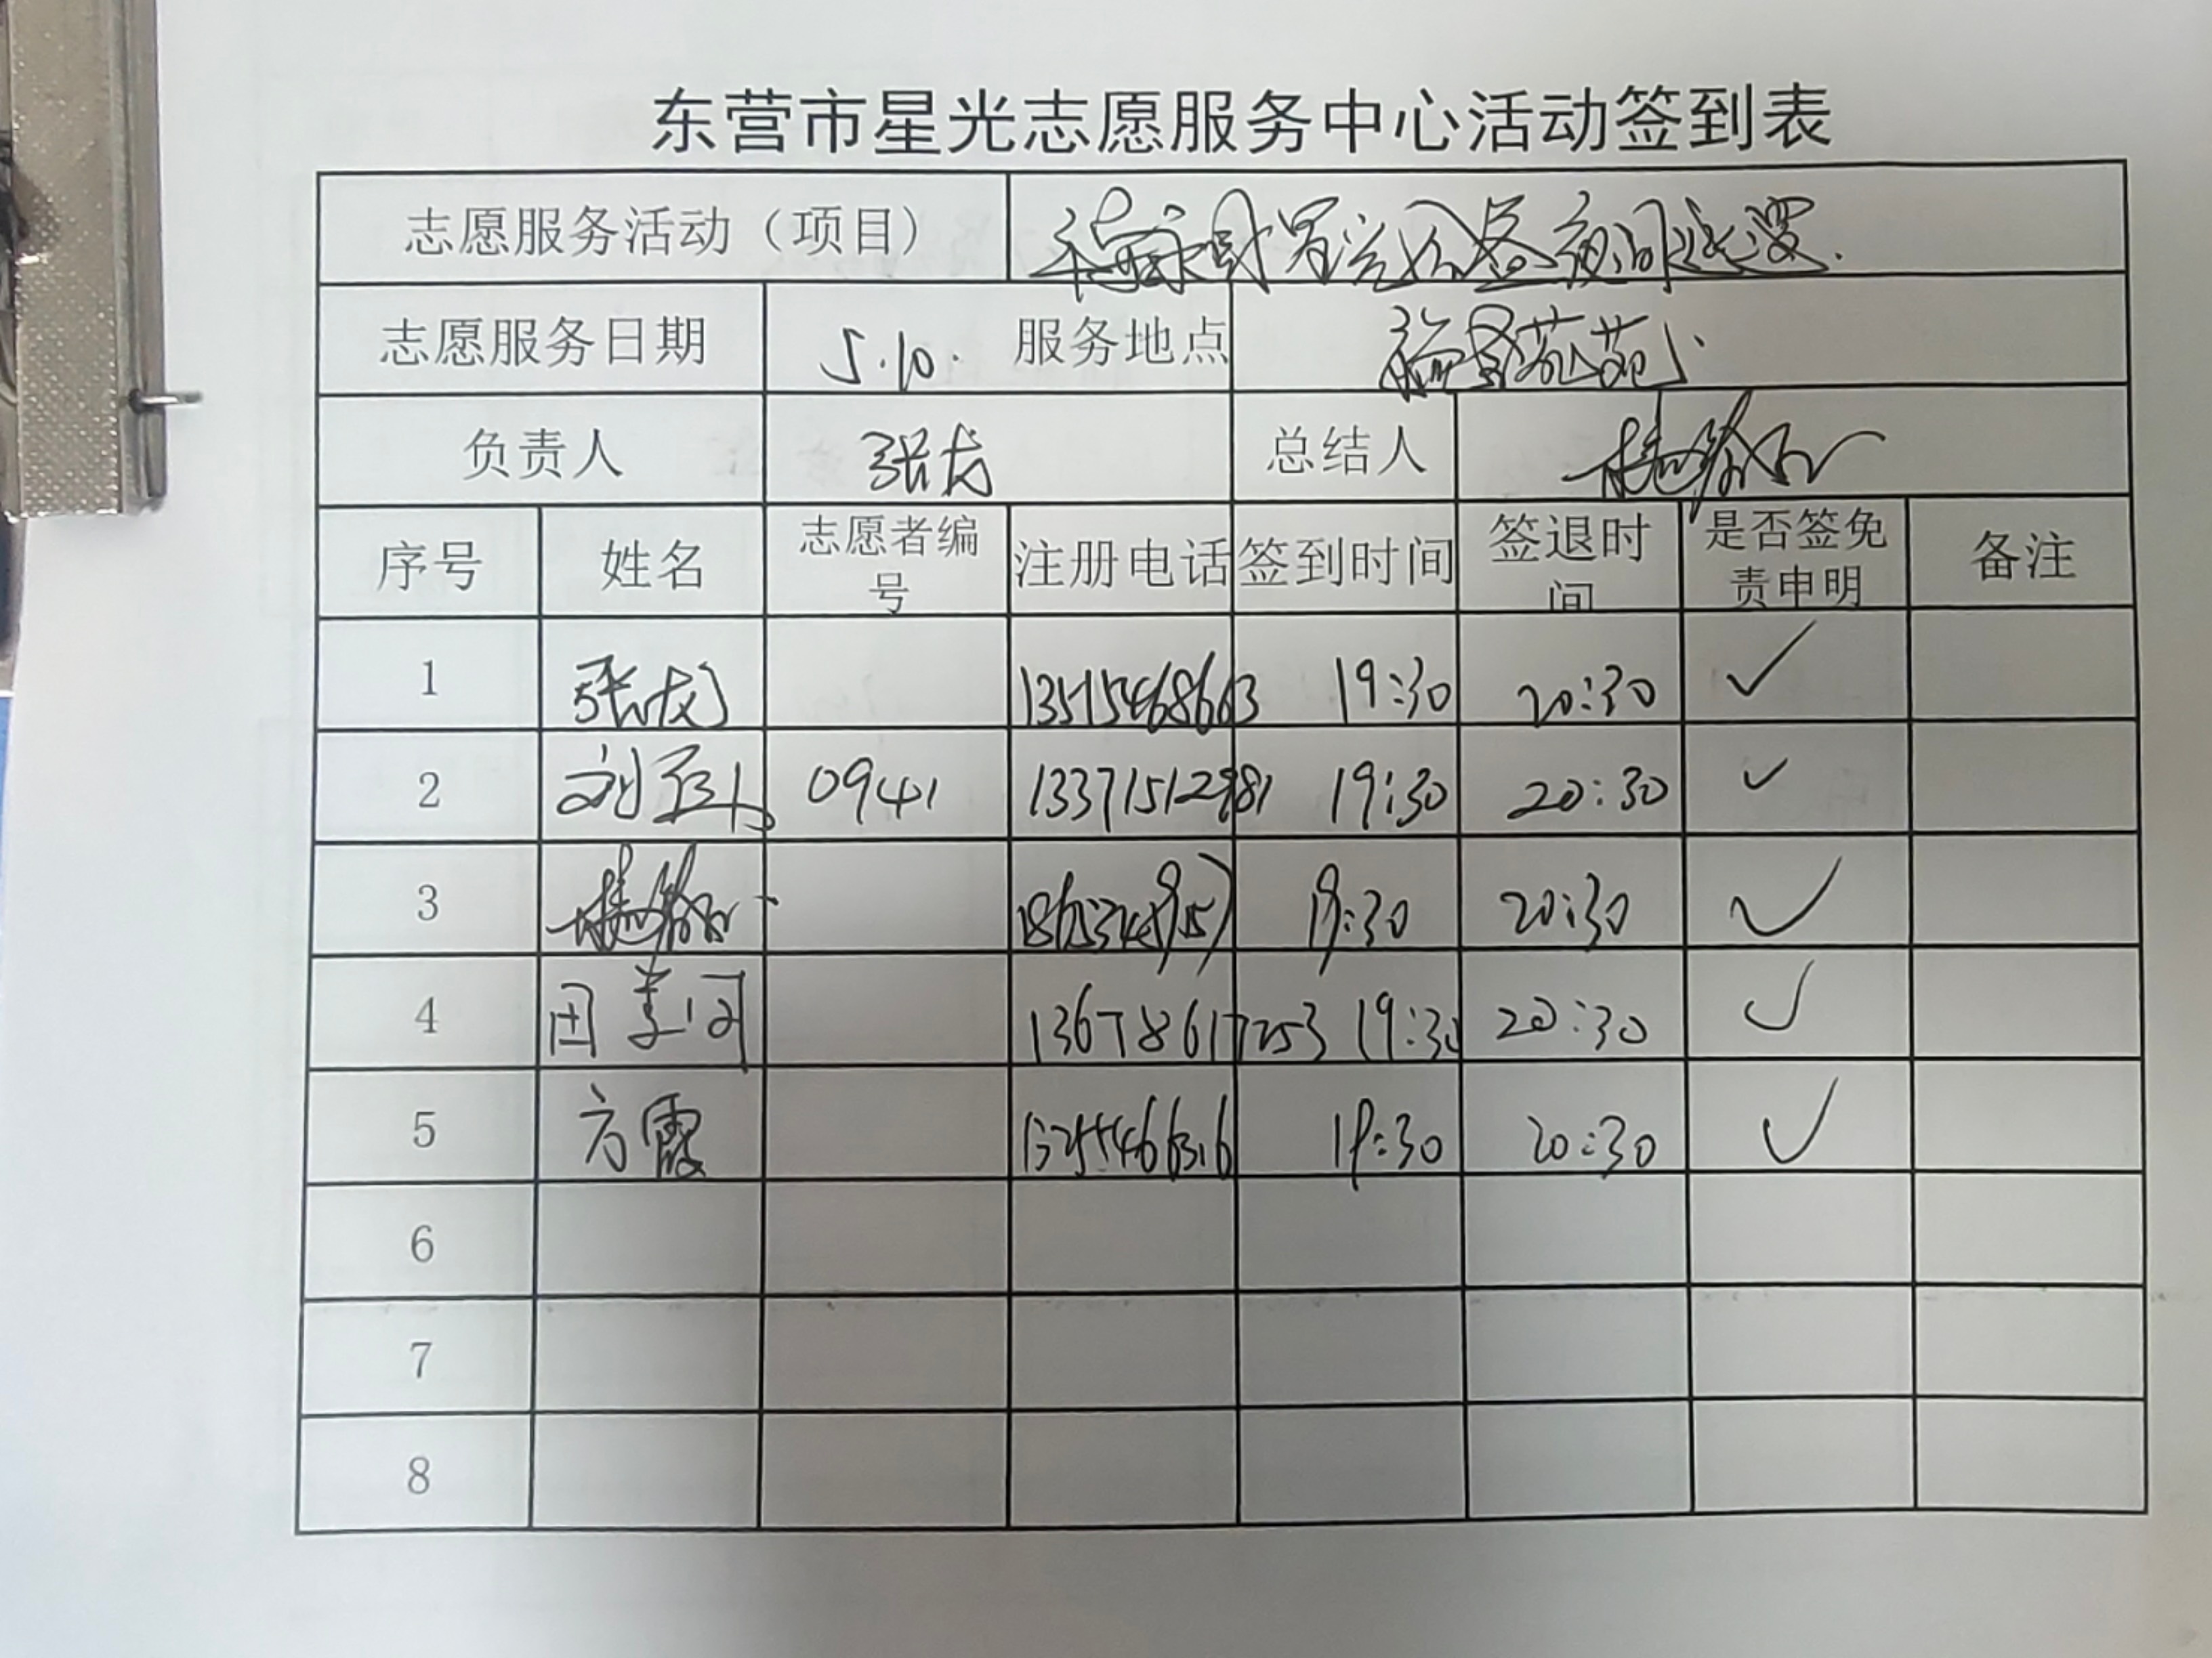 东营市星光志愿服务中心活动签到表
志愿服务活动（项目） 星光公益夜间巡逻.
志愿服务日期 5.10. 服务地点
负责人 张龙 总结人
序号 姓名 志愿者编号 注册电话 签到时间 签退时间 是否签免责申明 备注
1 张龙 13515468663 19:30 20:30 ✓
2 刘 0941 13371512981 19:30 20:30 ✓
3 19:30 20:30 ✓
4 田 13678617253 19:30 20:30 ✓
5 方霞 19:30 20:30 ✓
6
7
8